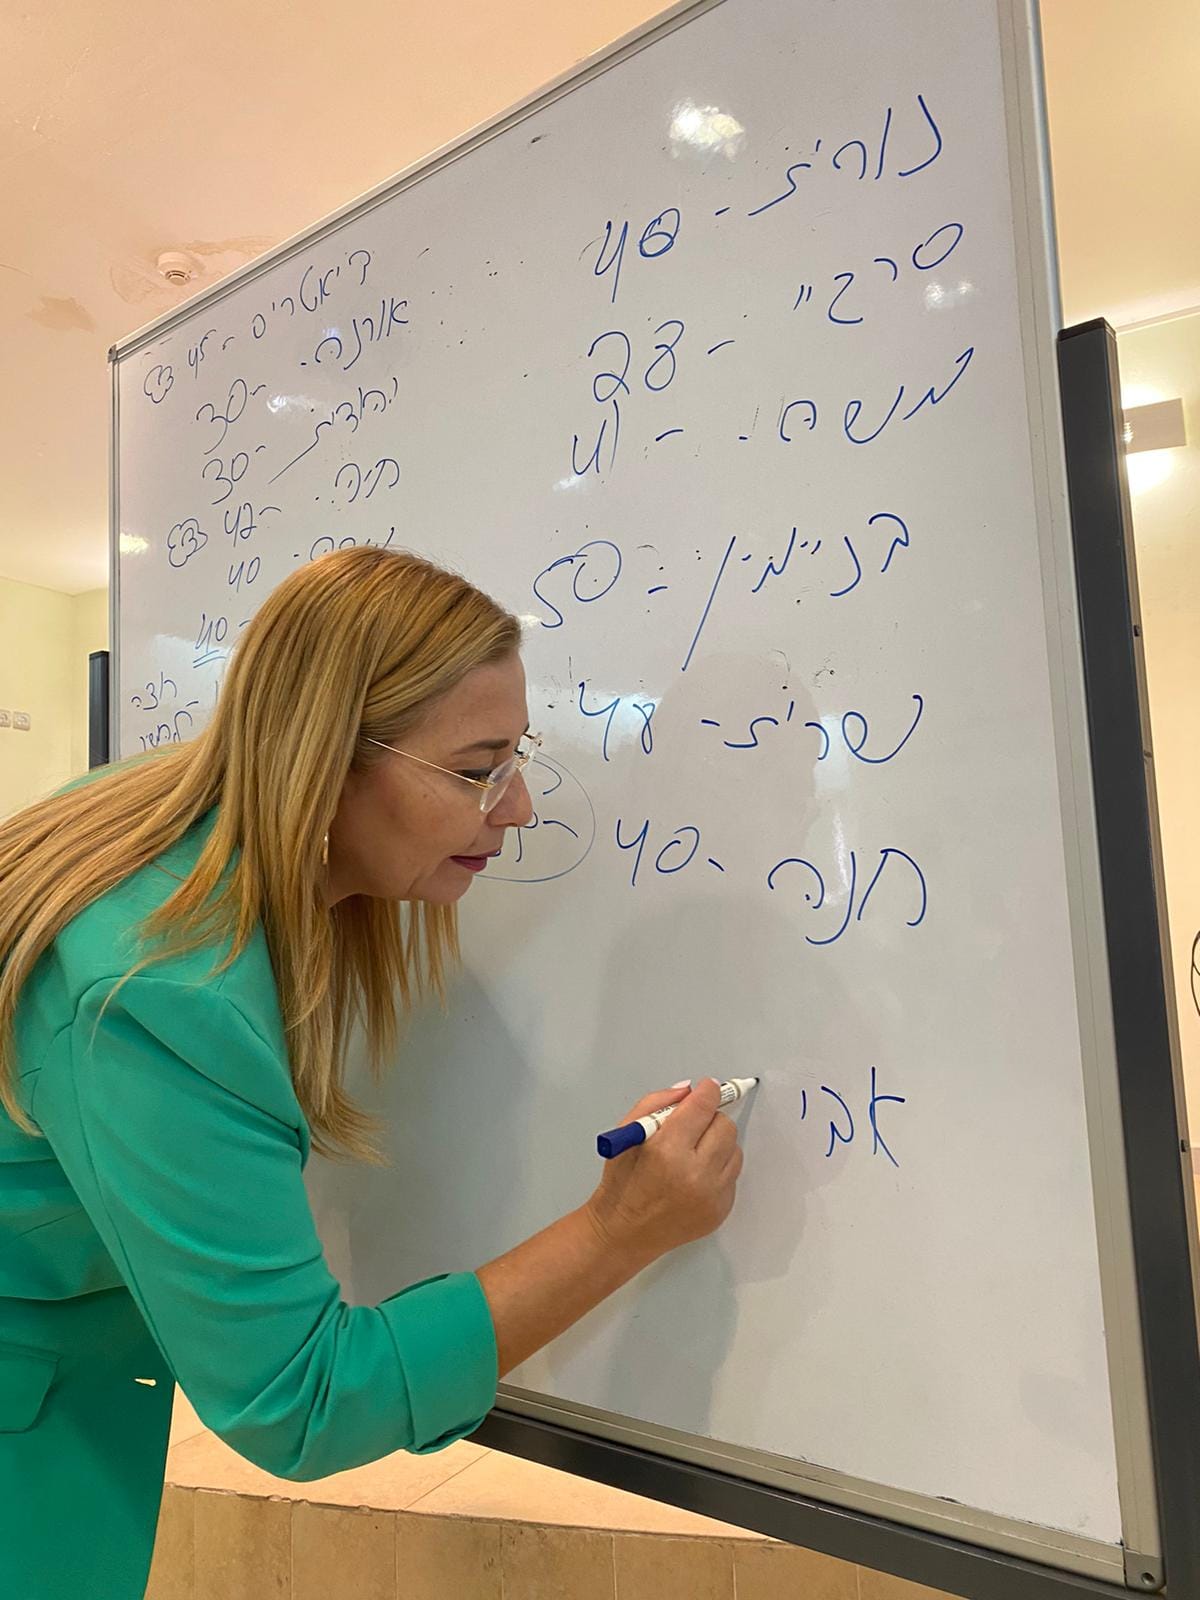 נורית - 40
סרג'יי - 28
מנשה - 41
בנימין - 50
שרית - 48
חנה - 40
אבי
ביאטריס - 45
אורנה - 30
יהודית - 30
חיה - 42
40
40
רוצה